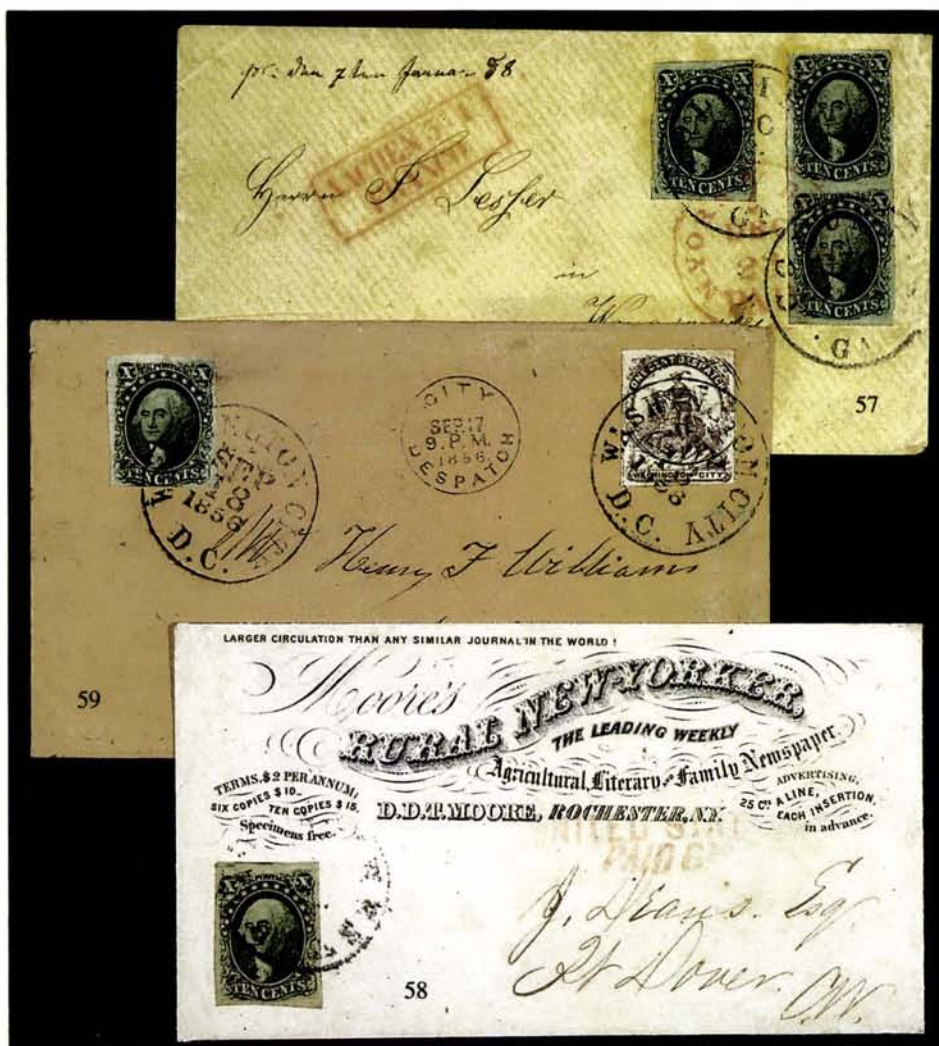 pr. den 7ten Januar 58
Herrn F Lesser
in
AACHEN
X X
TEN CENTS
X X
TEN CENTS
X X
TEN CENTS
GA
GA
57
X X
TEN CENTS
SEP
18
1856
D.C.
CITY
SEP.17
9.P.M.
1856
DESPATCH
ONE CENT DESPATCH
WASHINGTON CITY
D.C.
Henry F Williams
59
LARGER CIRCULATION THAN ANY SIMILAR JOURNAL IN THE WORLD!
Moore's
RURAL NEW-YORKER,
THE LEADING WEEKLY
Agricultural, Literary and Family Newspaper.
TERMS, $2 PER ANNUM;
SIX COPIES $10_
TEN COPIES $15.
Specimens free.
D.D.T. MOORE, ROCHESTER, N.Y.
ADVERTISING,
25 Cts A LINE,
EACH INSERTION,
in advance.
UNITED STAT
PAID 6
X X
TEN CENTS
J. Deans. Esq
Pt Dover.
C.W.
58